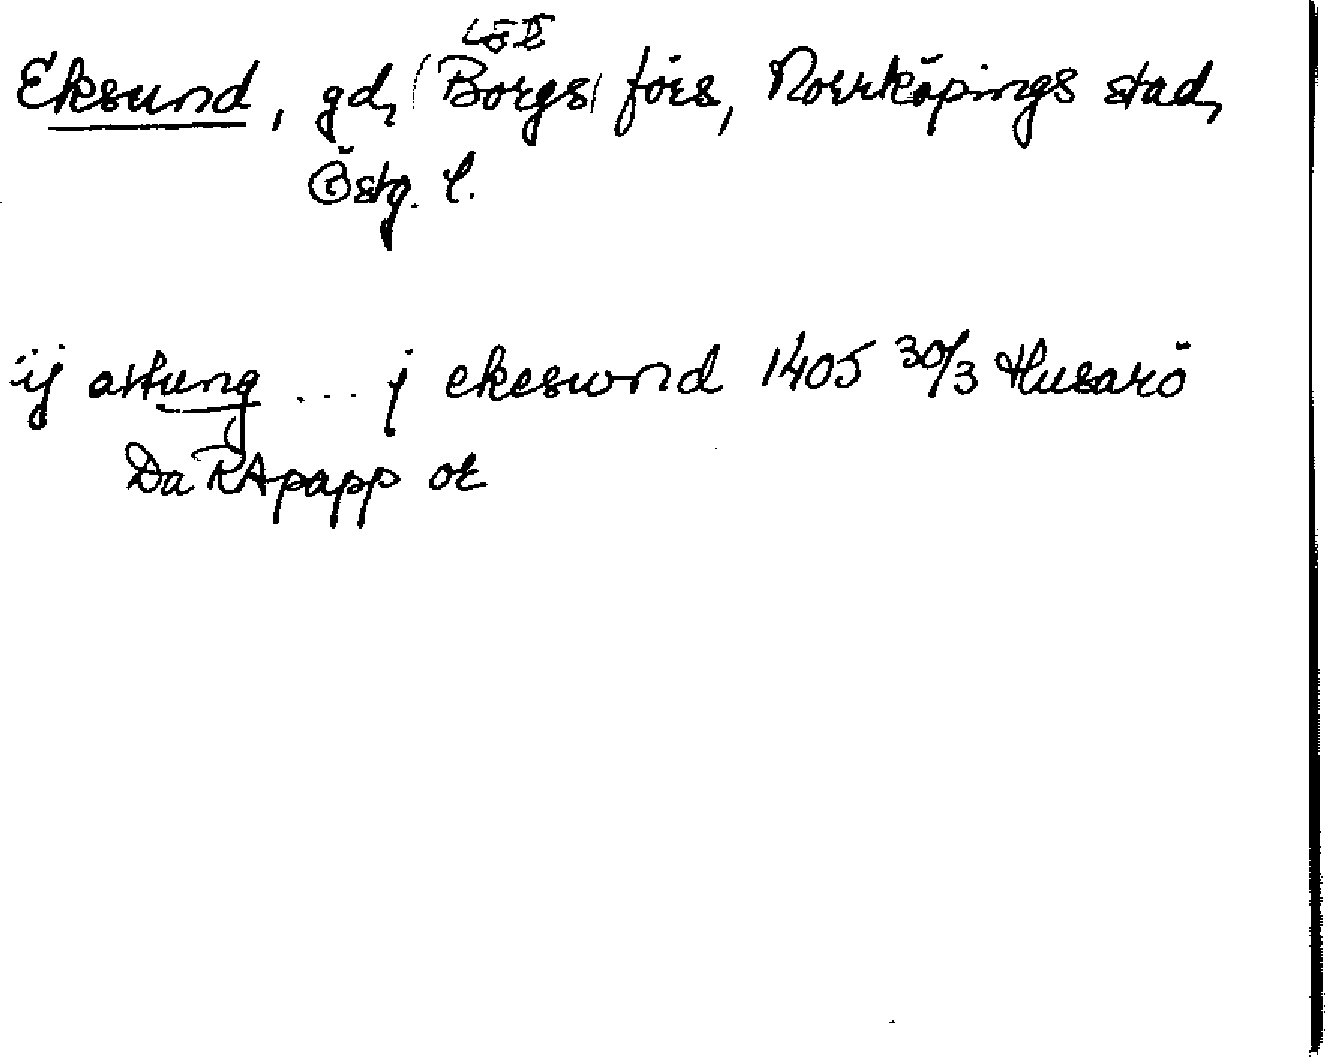 Lö k
Eksund, gd, (Borgs) förs, Norrköpings stad,
Östg. l.
ij attung ... j ekeswnd 1405 30/3 Husarö
Da RApapp or